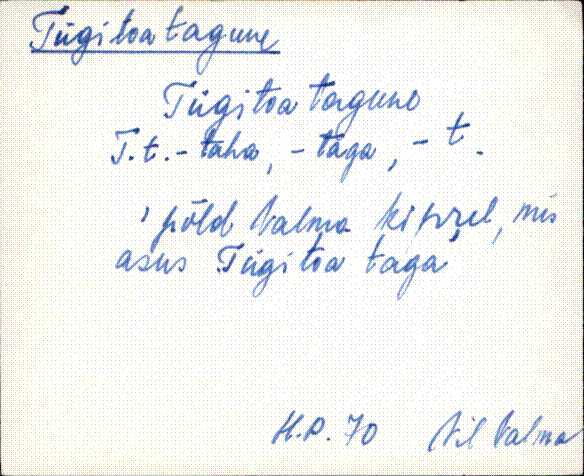 Tügitoa tagune
Tügitoa tagune
T.t. - taha, - taga, - t.
'põld Valma
asus Tügitoa taga'
H.P. 70 Vil Valma